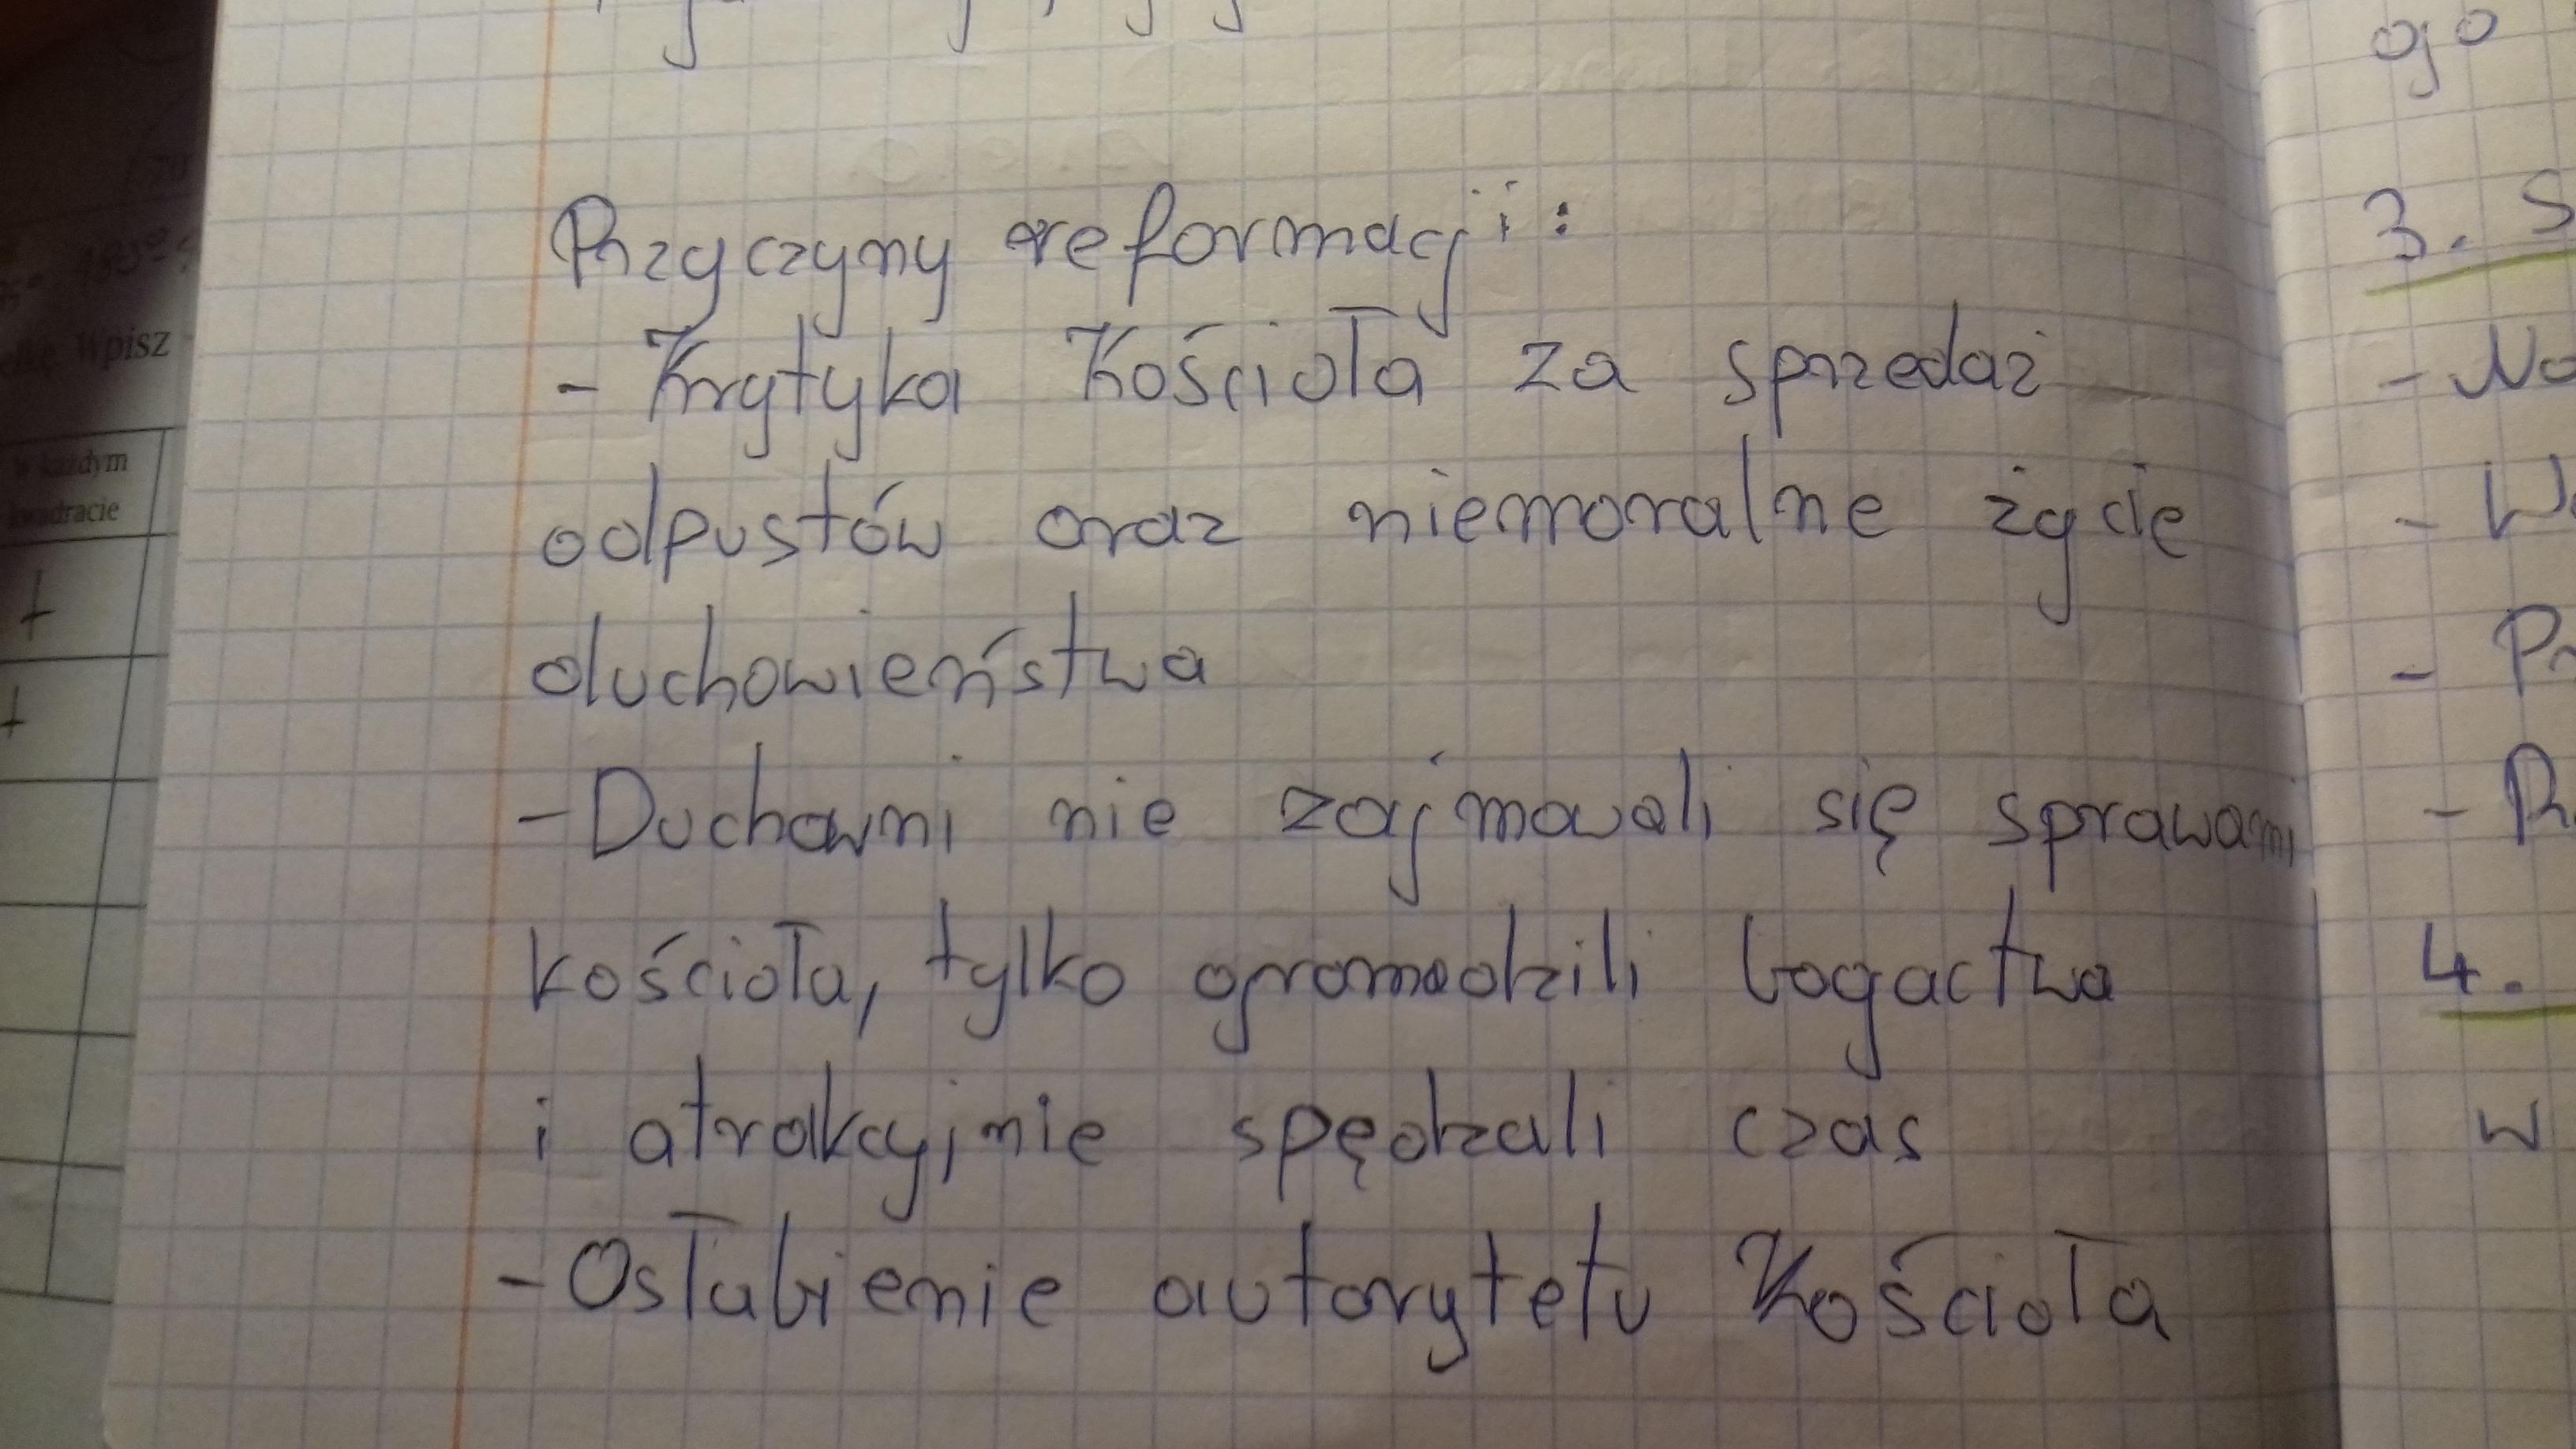 Przyczyny reformacji:
- Krytyka Kościoła za sprzedaż
odpustów oraz niemoralne życie
duchowieństwa
- Duchowni nie zajmowali się sprawami
kościoła, tylko gromadzili bogactwa
i atrakcyjnie spędzali czas
- Osłabienie autorytetu Kościoła
Wpisz
w każdym
kwadracie
+
+
go
3. S
- No
- W
- Pr
- P
4.
w